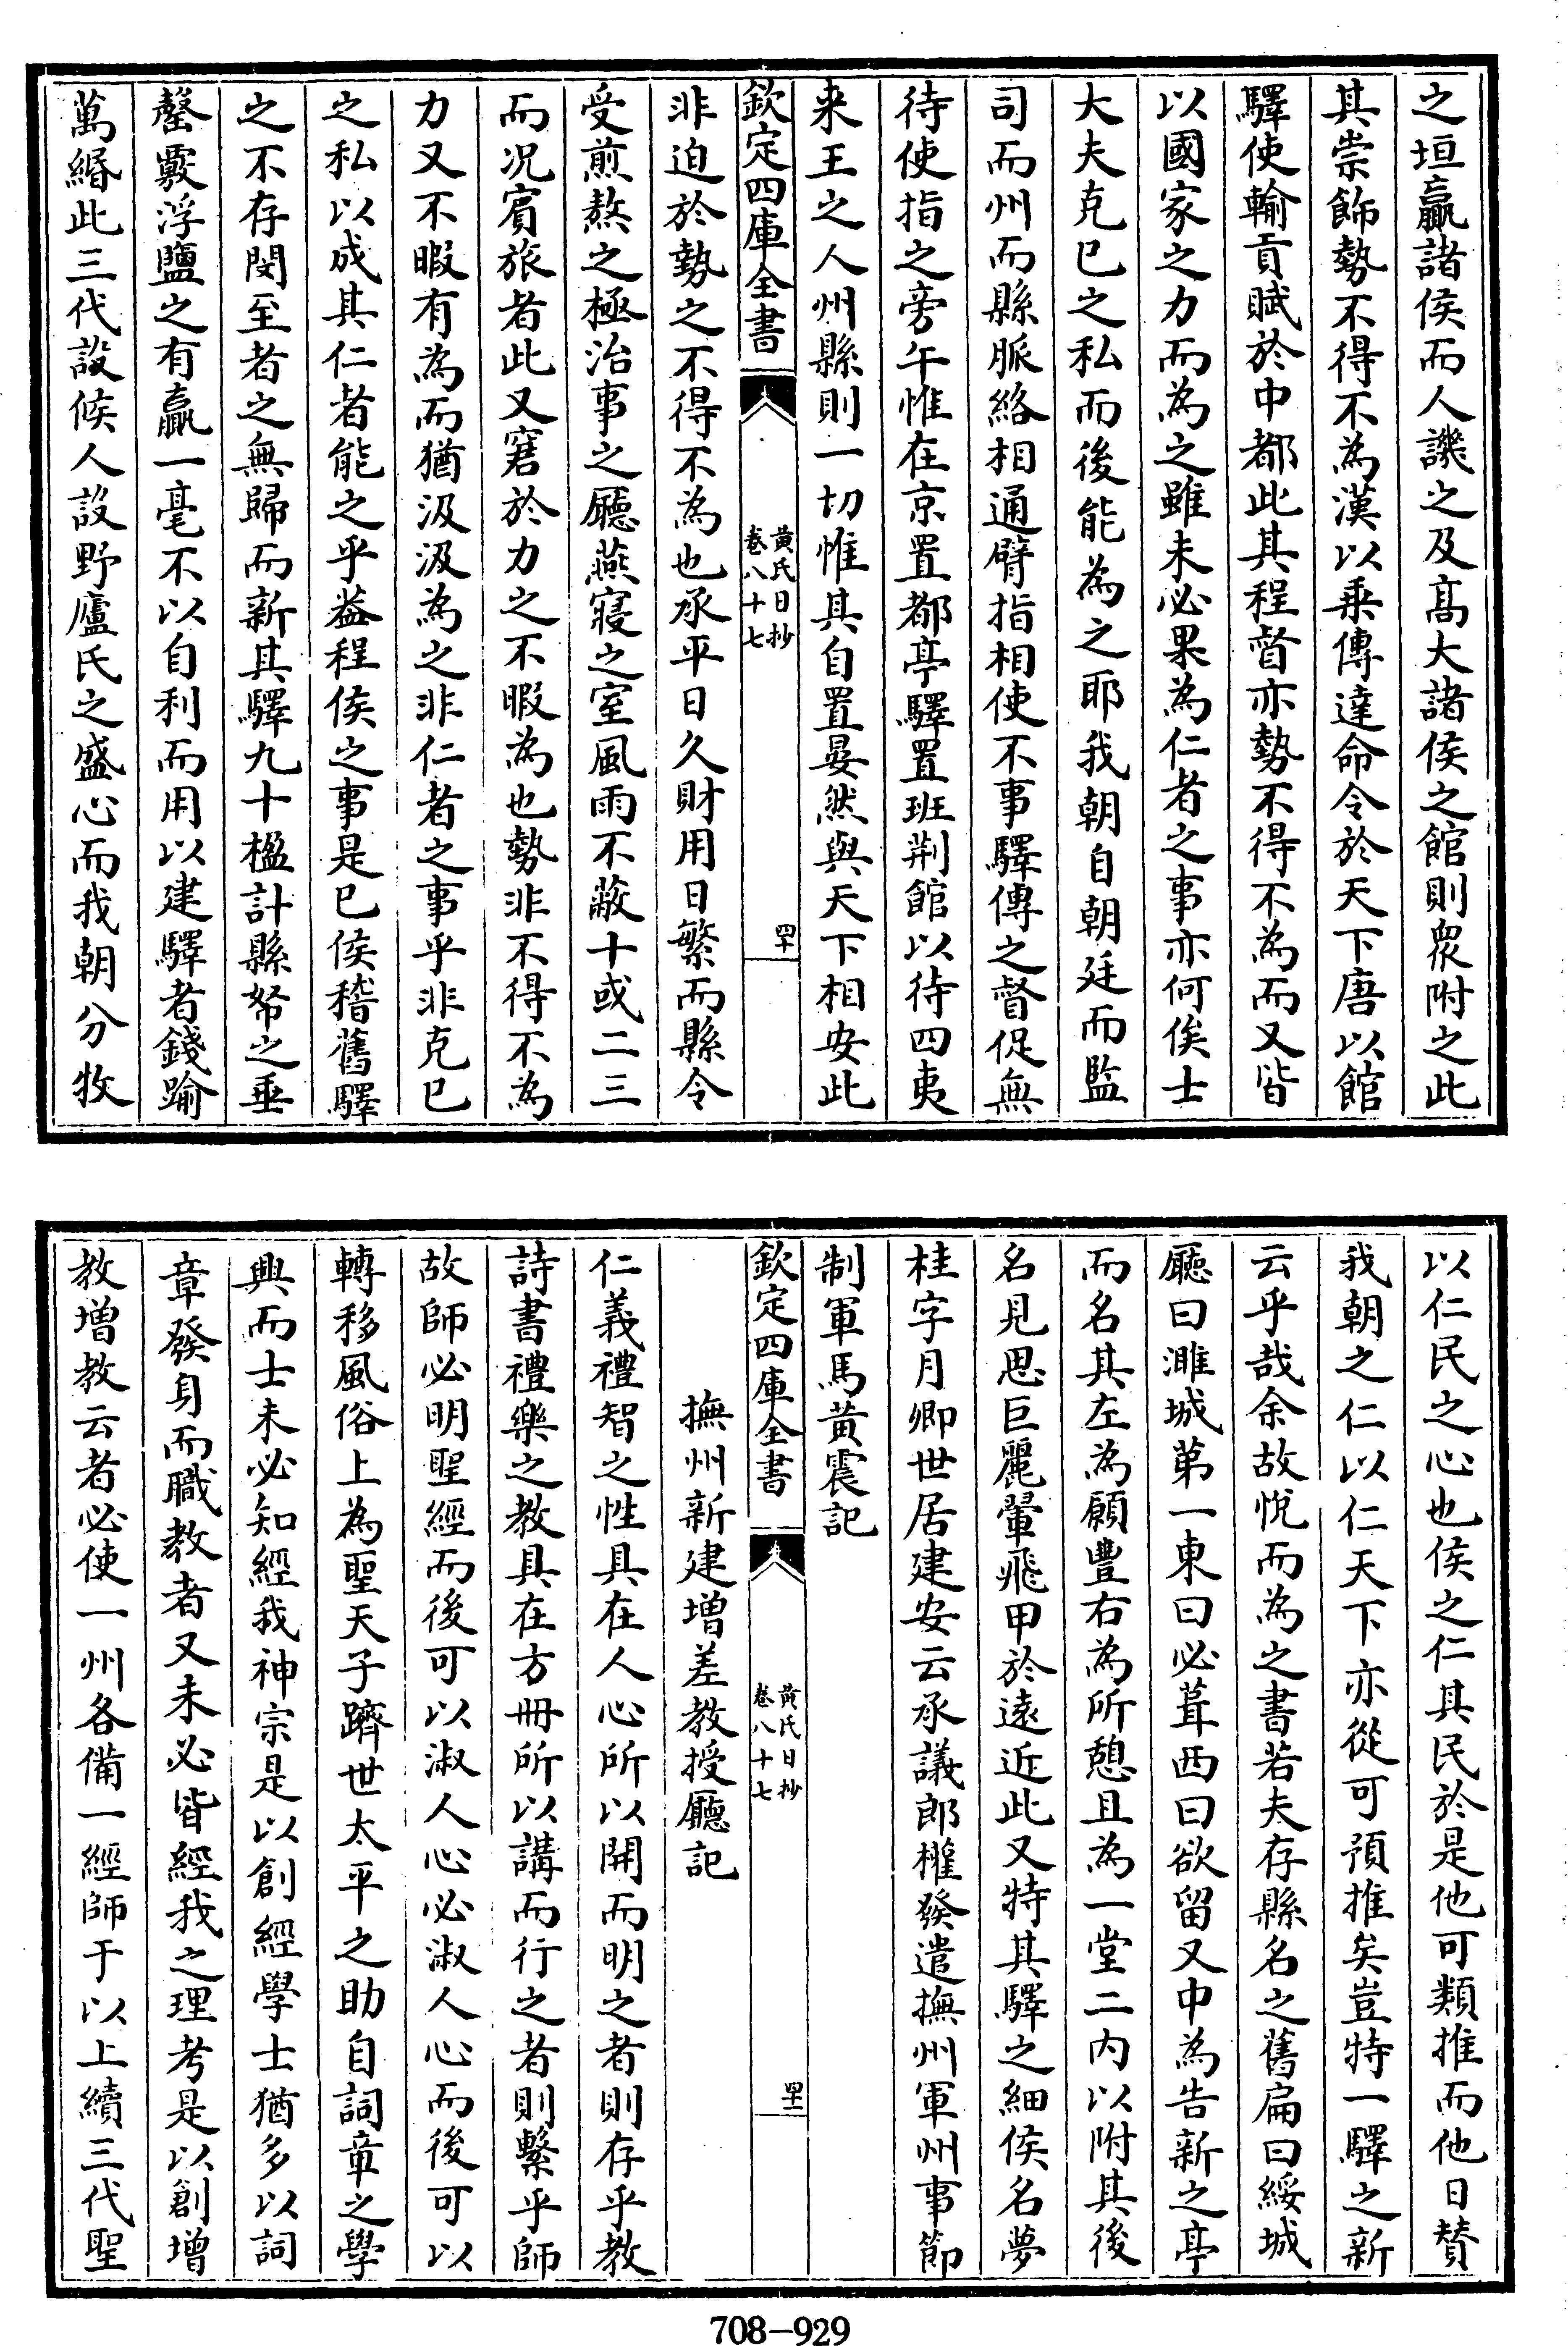 之垣贏諸侯而人譏之及髙大諸侯之館則衆附之此
其崇飾勢不得不為漢以乗傳達命令於天下唐以館
驛使輸貢賦於中都此其程督亦勢不得不為而又皆
以國家之力而為之雖未必果為仁者之事亦何俟士
大夫克已之私而後能為之耶我朝自朝廷而監
司而州而縣脈絡相通臂指相使不事驛傳之督促無
待使指之旁午惟在京置都亭驛置班荆館以待四夷
来王之人州縣則一切惟其自置晏然與天下相安此
欽定四庫全書
黄氏日抄
卷八十七
四十
非迫於勢之不得不為也承平日久財用日繁而縣令
受煎熬之極治事之廳燕寢之室風雨不蔽十或二三
而况賓旅者此又窘於力之不暇為也勢非不得不為
力又不暇有為而猶汲汲為之非仁者之事乎非克已
之私以成其仁者能之乎葢程侯之事是已侯稽舊驛
之不存閔至者之無歸而新其驛九十楹計縣帑之垂
罄覈浮鹽之有贏一毫不以自利而用以建驛者錢踰
萬緡此三代設候人設野廬氏之盛心而我朝分牧
以仁民之心也侯之仁其民於是他可類推而他日賛
我朝之仁以仁天下亦從可預推矣豈特一驛之新
云乎哉余故悅而為之書若夫存縣名之舊扁曰綏城
廳曰濉城第一東曰必葺西曰欲留又中為告新之亭
而名其左為願豐右為所憩且為一堂二内以附其後
名見思巨麗翬飛甲於逺近此又特其驛之細侯名夢
桂字月卿世居建安云承議郎權發遣撫州軍州事節
制軍馬黄震記
欽定四庫全書
黄氏日抄
卷八十七
四十一
撫州新建增差教授廳記
仁義禮智之性具在人心所以開而明之者則存乎教
詩書禮樂之教具在方冊所以講而行之者則繫乎師
故師必明聖經而後可以淑人心必淑人心而後可以
轉移風俗上為聖天子躋世太平之助自詞章之學
興而士未必知經我神宗是以創經學士猶多以詞
章發身而職教者又未必皆經我之理考是以創增
教增教云者必使一州各備一經師于以上續三代聖
708-929